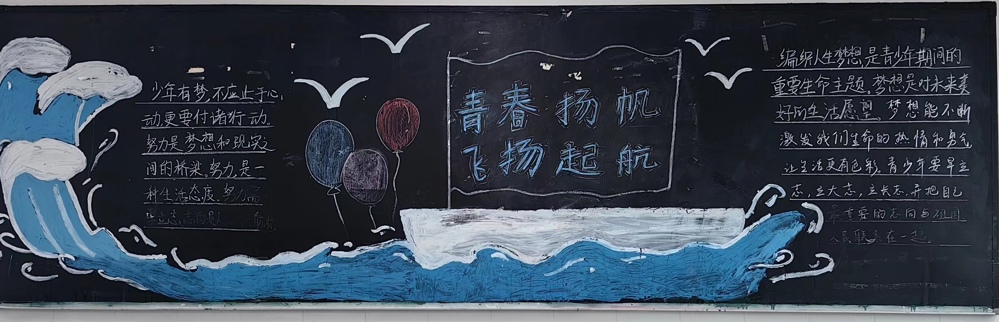 少年有梦,不应止于心
动更要付诸行动.
努力是梦想和现实
间的桥梁,努力是一
种生活态度.努力
青春扬帆
飞扬起航
编织人生梦想,是青少年期间的
重要生命主题,梦想是对未来美
好的生活愿望,梦想能不断
激发我们生命的热情和勇气
让生活更有色彩,青少年要早立
志,立大志,立长志,并把自己
人民联系在一起.